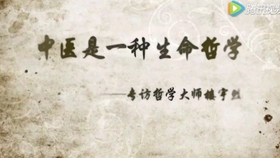 中医是一种生命哲学
——专访哲学大师楼宇烈